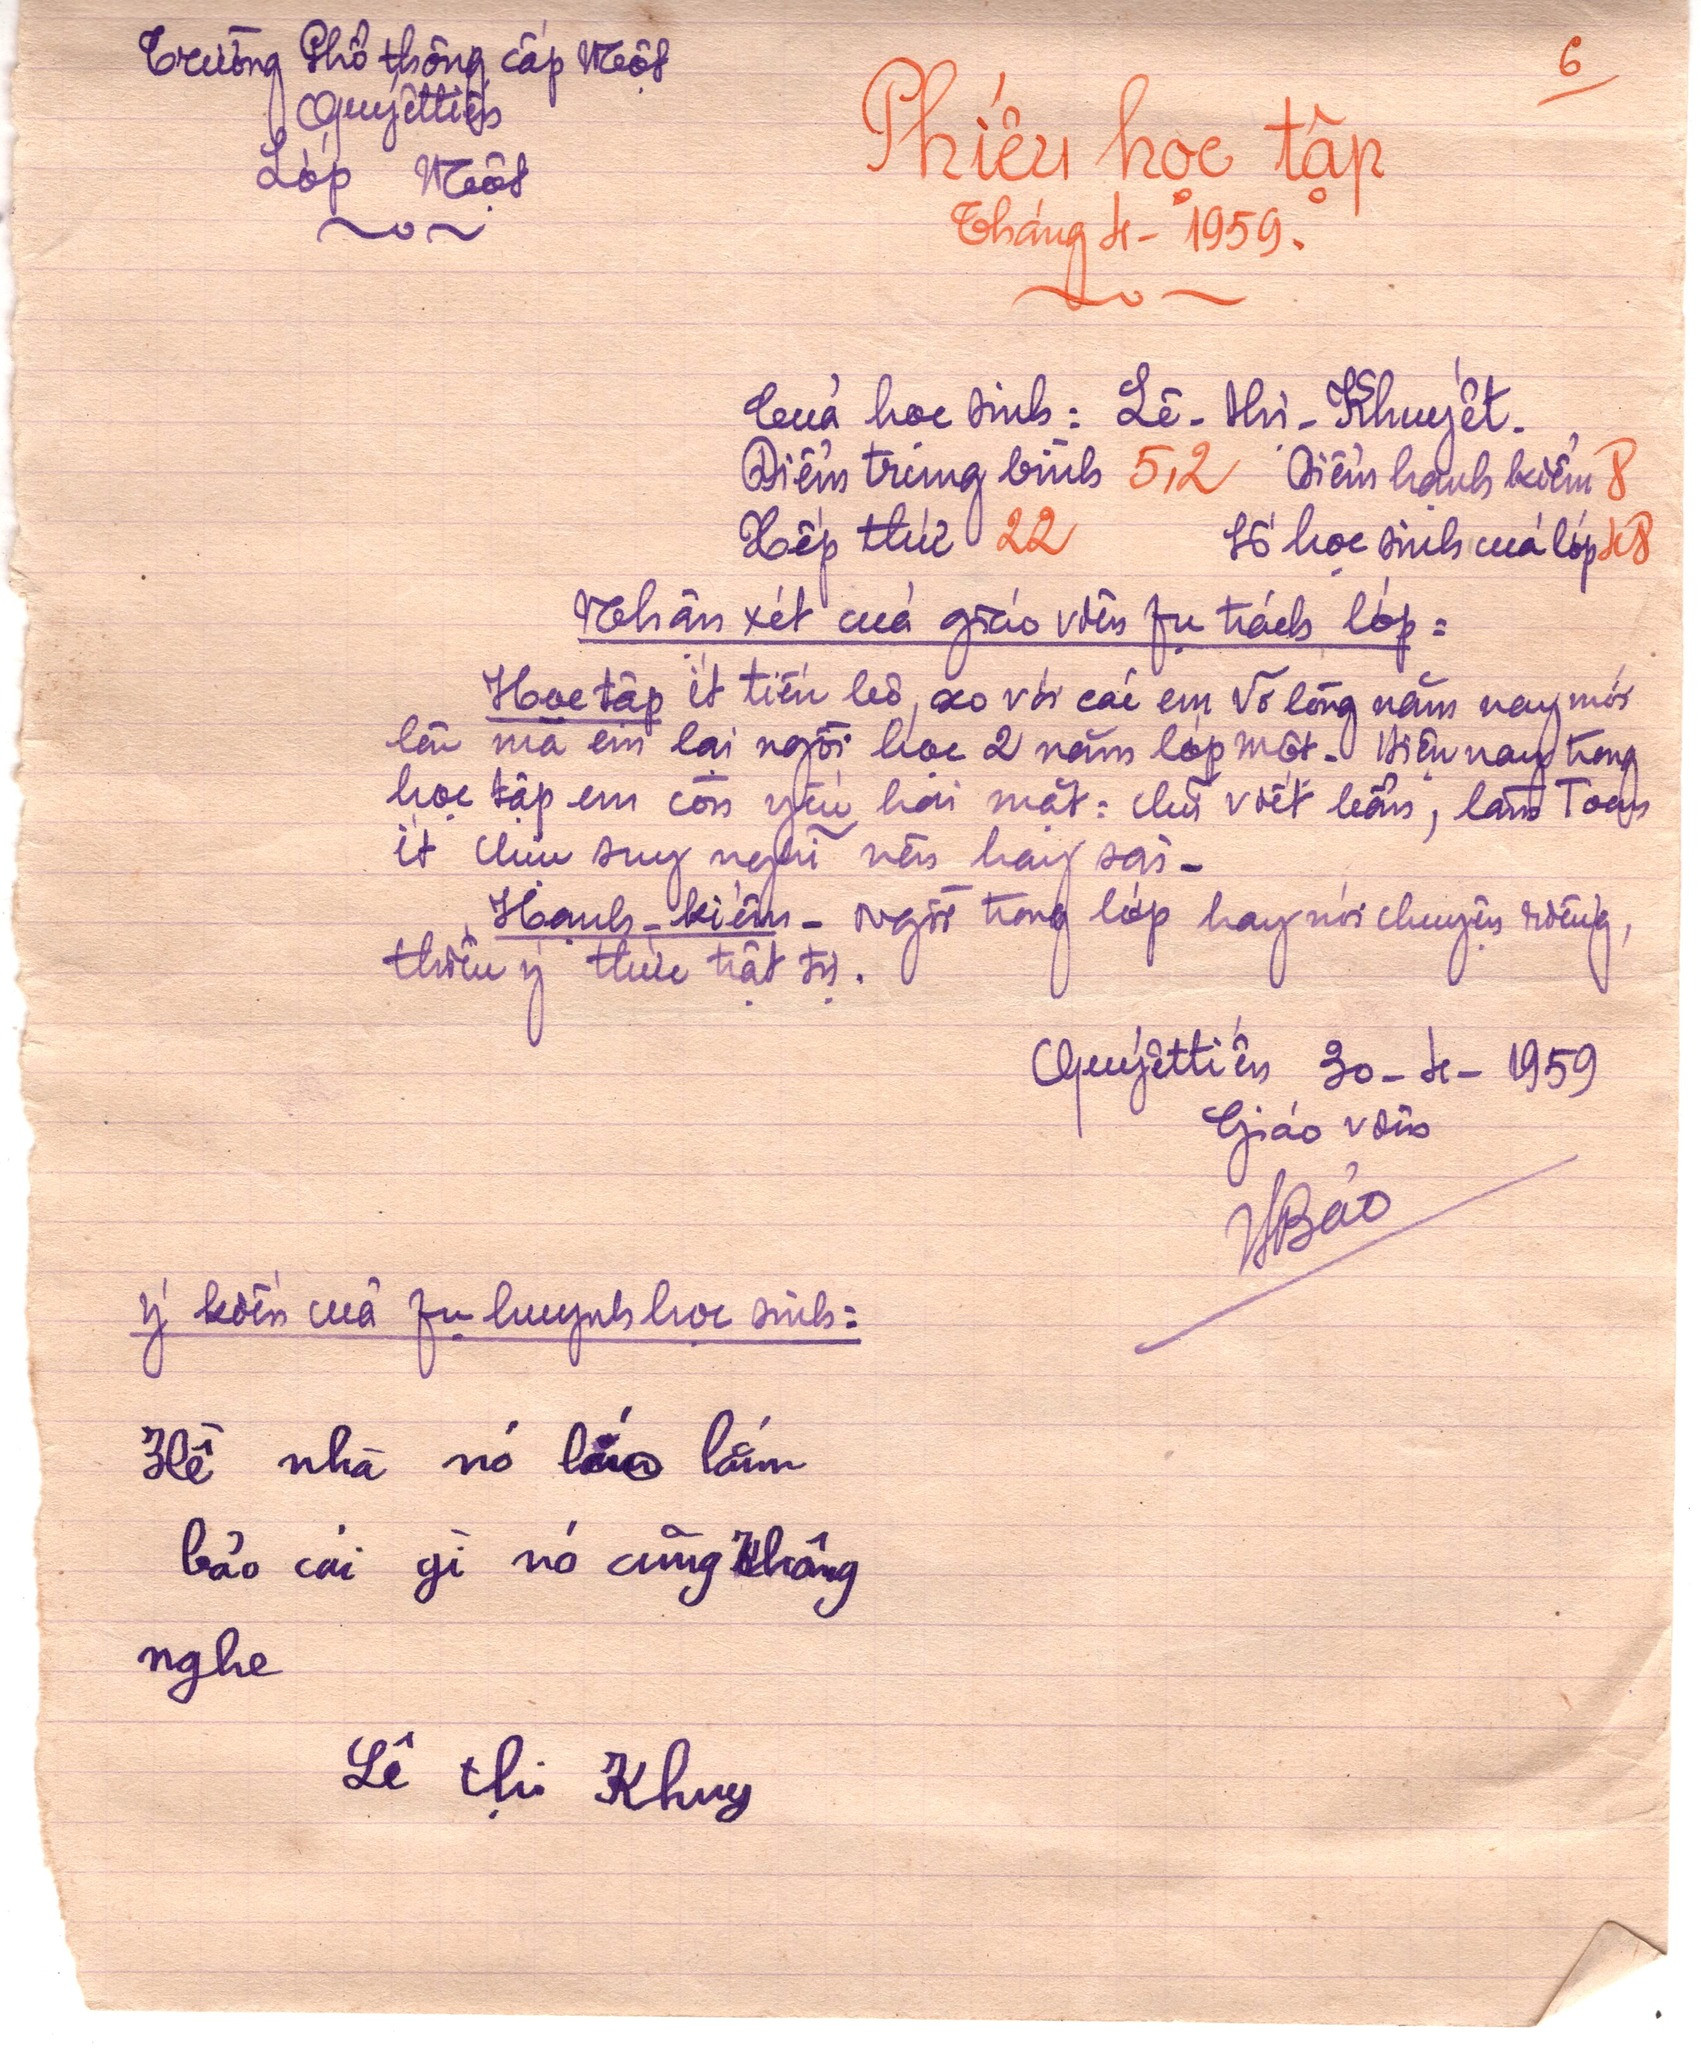 Trường Phổ thông cấp Một
Quyết tiến
Lớp Một
6
Phiếu học tập
Tháng 4 - 1959.
Của học sinh: Lê - thị - Khuyết.
Điểm trung bình 5,2 Điểm hạnh kiểm 8
Xếp thứ 22 Số học sinh cuả lớp 48
Nhận xét cuả giáo viên fụ trách lớp:
Học tập ít tiến bộ, so với các em vỡ lòng năm nay mới
lên mà em lại ngồi học 2 năm lớp một. Hiện nay trong
học tập em còn yếu hai mặt: chữ viết bẩn, làm Toán
ít chịu suy nghĩ nên hay sai -
Hạnh - kiểm - Ngồi trong lớp hay nói chuyện riêng,
thiếu ý thức trật tự.
Quyết tiến 30 - 4 - 1959
Giáo viên
Bảo
Ý kiến cuả fụ huynh học sinh:
Hề nhà nó láo lắm
bảo cái gì nó cũng không
nghe
Lê thị Khuy